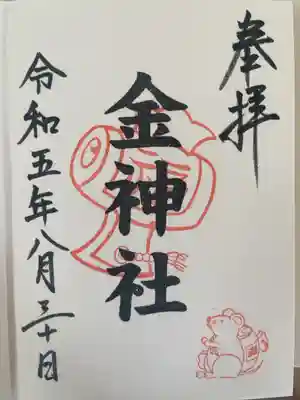 奉拝
金神社
令和五年八月三十日